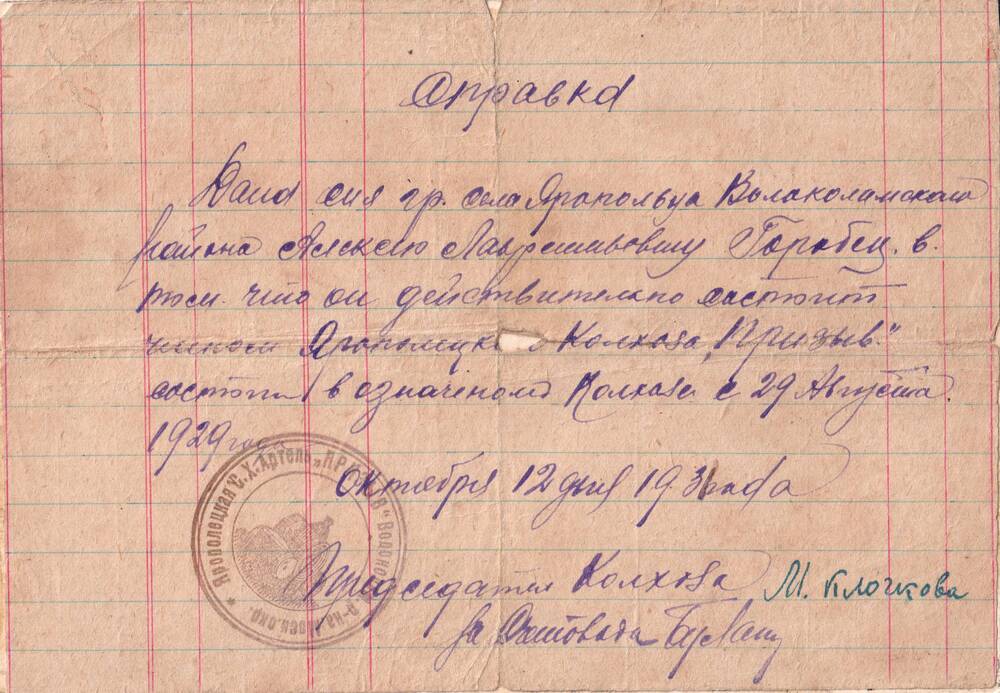 Справка
Дана сия гр. села Яропольца Волоколамского
района Алексею Лаврентьевичу Горобец. в.
том что он действительно состоит
членом Ярополецк о Колхоза „Призыв."
состоит в означеном Колхозе с 29 Августа.
1929 года
Октября 12 дня 1931 года
Председатель Колхоза М. Клочкова
за Счетовода
Ярополецкая С.Х. Артель „ПРИЗЫВ" Волокол
р-на Моск.окр.